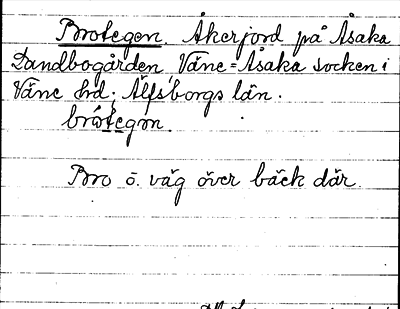 Brotegen. Åkerjord på Åsaka
Landbogården Väne-Åsaka socken i
Väne hd; Älfsborgs län.
brótegơn.
Bro o. väg över bäck där.